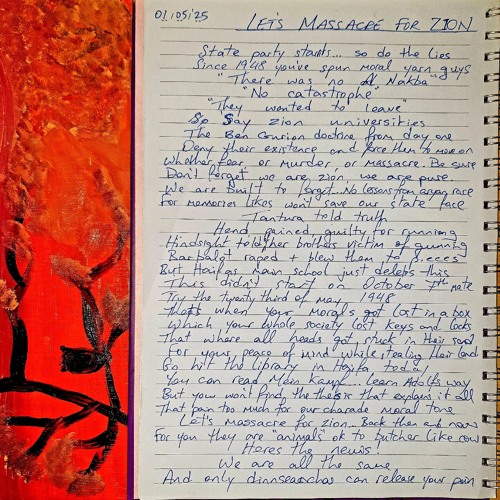 01/05/25
LET'S MASSACRE FOR ZION
State party starts... so do the lies
Since 1948 you've spun moral yarn guys
"There was no Nakba"
"No catastrophe"
"They wanted to leave"
So say zion universities
The Ben Gourion doctrine from day one
Deny their existence and force them to move on
Whether fear, or murder, or massacre. Be sure
Don't forget we are zion, we are pure.
We are built to forget... No lessons from aryan race
For memories likes won't save our state face
Tantura told truth
Hand, gained, guilty for running
Hindsight told her brothers victim of gunning
raped + blew them to p.eces
But Haifas main school just delets this
This didn't start on October 7th mate
Try the twenty third of may, 1948
Thats when your morals got lost in a box
Which your whole society lost keys and locks
That where all heads got stuck in their sand
For your peace of mind while stealing their land
Go hit the library in Haifa today
You can read Mein Kampf... learn Adolfs way
But you wont find the thesis that explains it all
That pain too much for our charade moral tone
Let's massacre for zion. Back then and now
For you they are "animals" ok to butcher like cow
Heres the news!
We are all the same
And only can release your pain